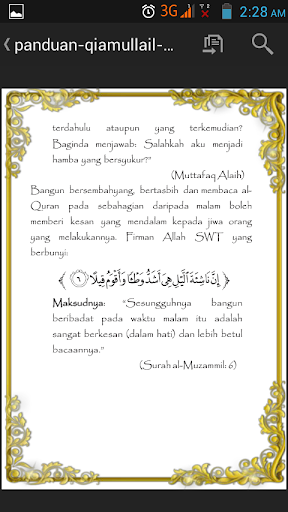 3G 2:28 AM
panduan-qiamullail-...
terdahulu ataupun yang terkemudian?
Baginda menjawab: Salahkah aku menjadi
hamba yang bersyukur?"
(Muttafaq Alaih)
Bangun bersembahyang, bertasbih dan membaca al-
Quran pada sebahagian daripada malam boleh
memberi kesan yang mendalam kepada jiwa orang
yang melakukannya. Firman Allah SWT yang
berbunyi:
﴿إِنَّ نَاشِئَةَ ٱلَّيْلِ هِىَ أَشَدُّ وَطْـًٔا وَأَقْوَمُ قِيلًا ٦﴾
Maksudnya: "Sesungguhnya bangun
beribadat pada waktu malam itu adalah
sangat berkesan (dalam hati) dan lebih betul
bacaannya."
(Surah al-Muzammil: 6)